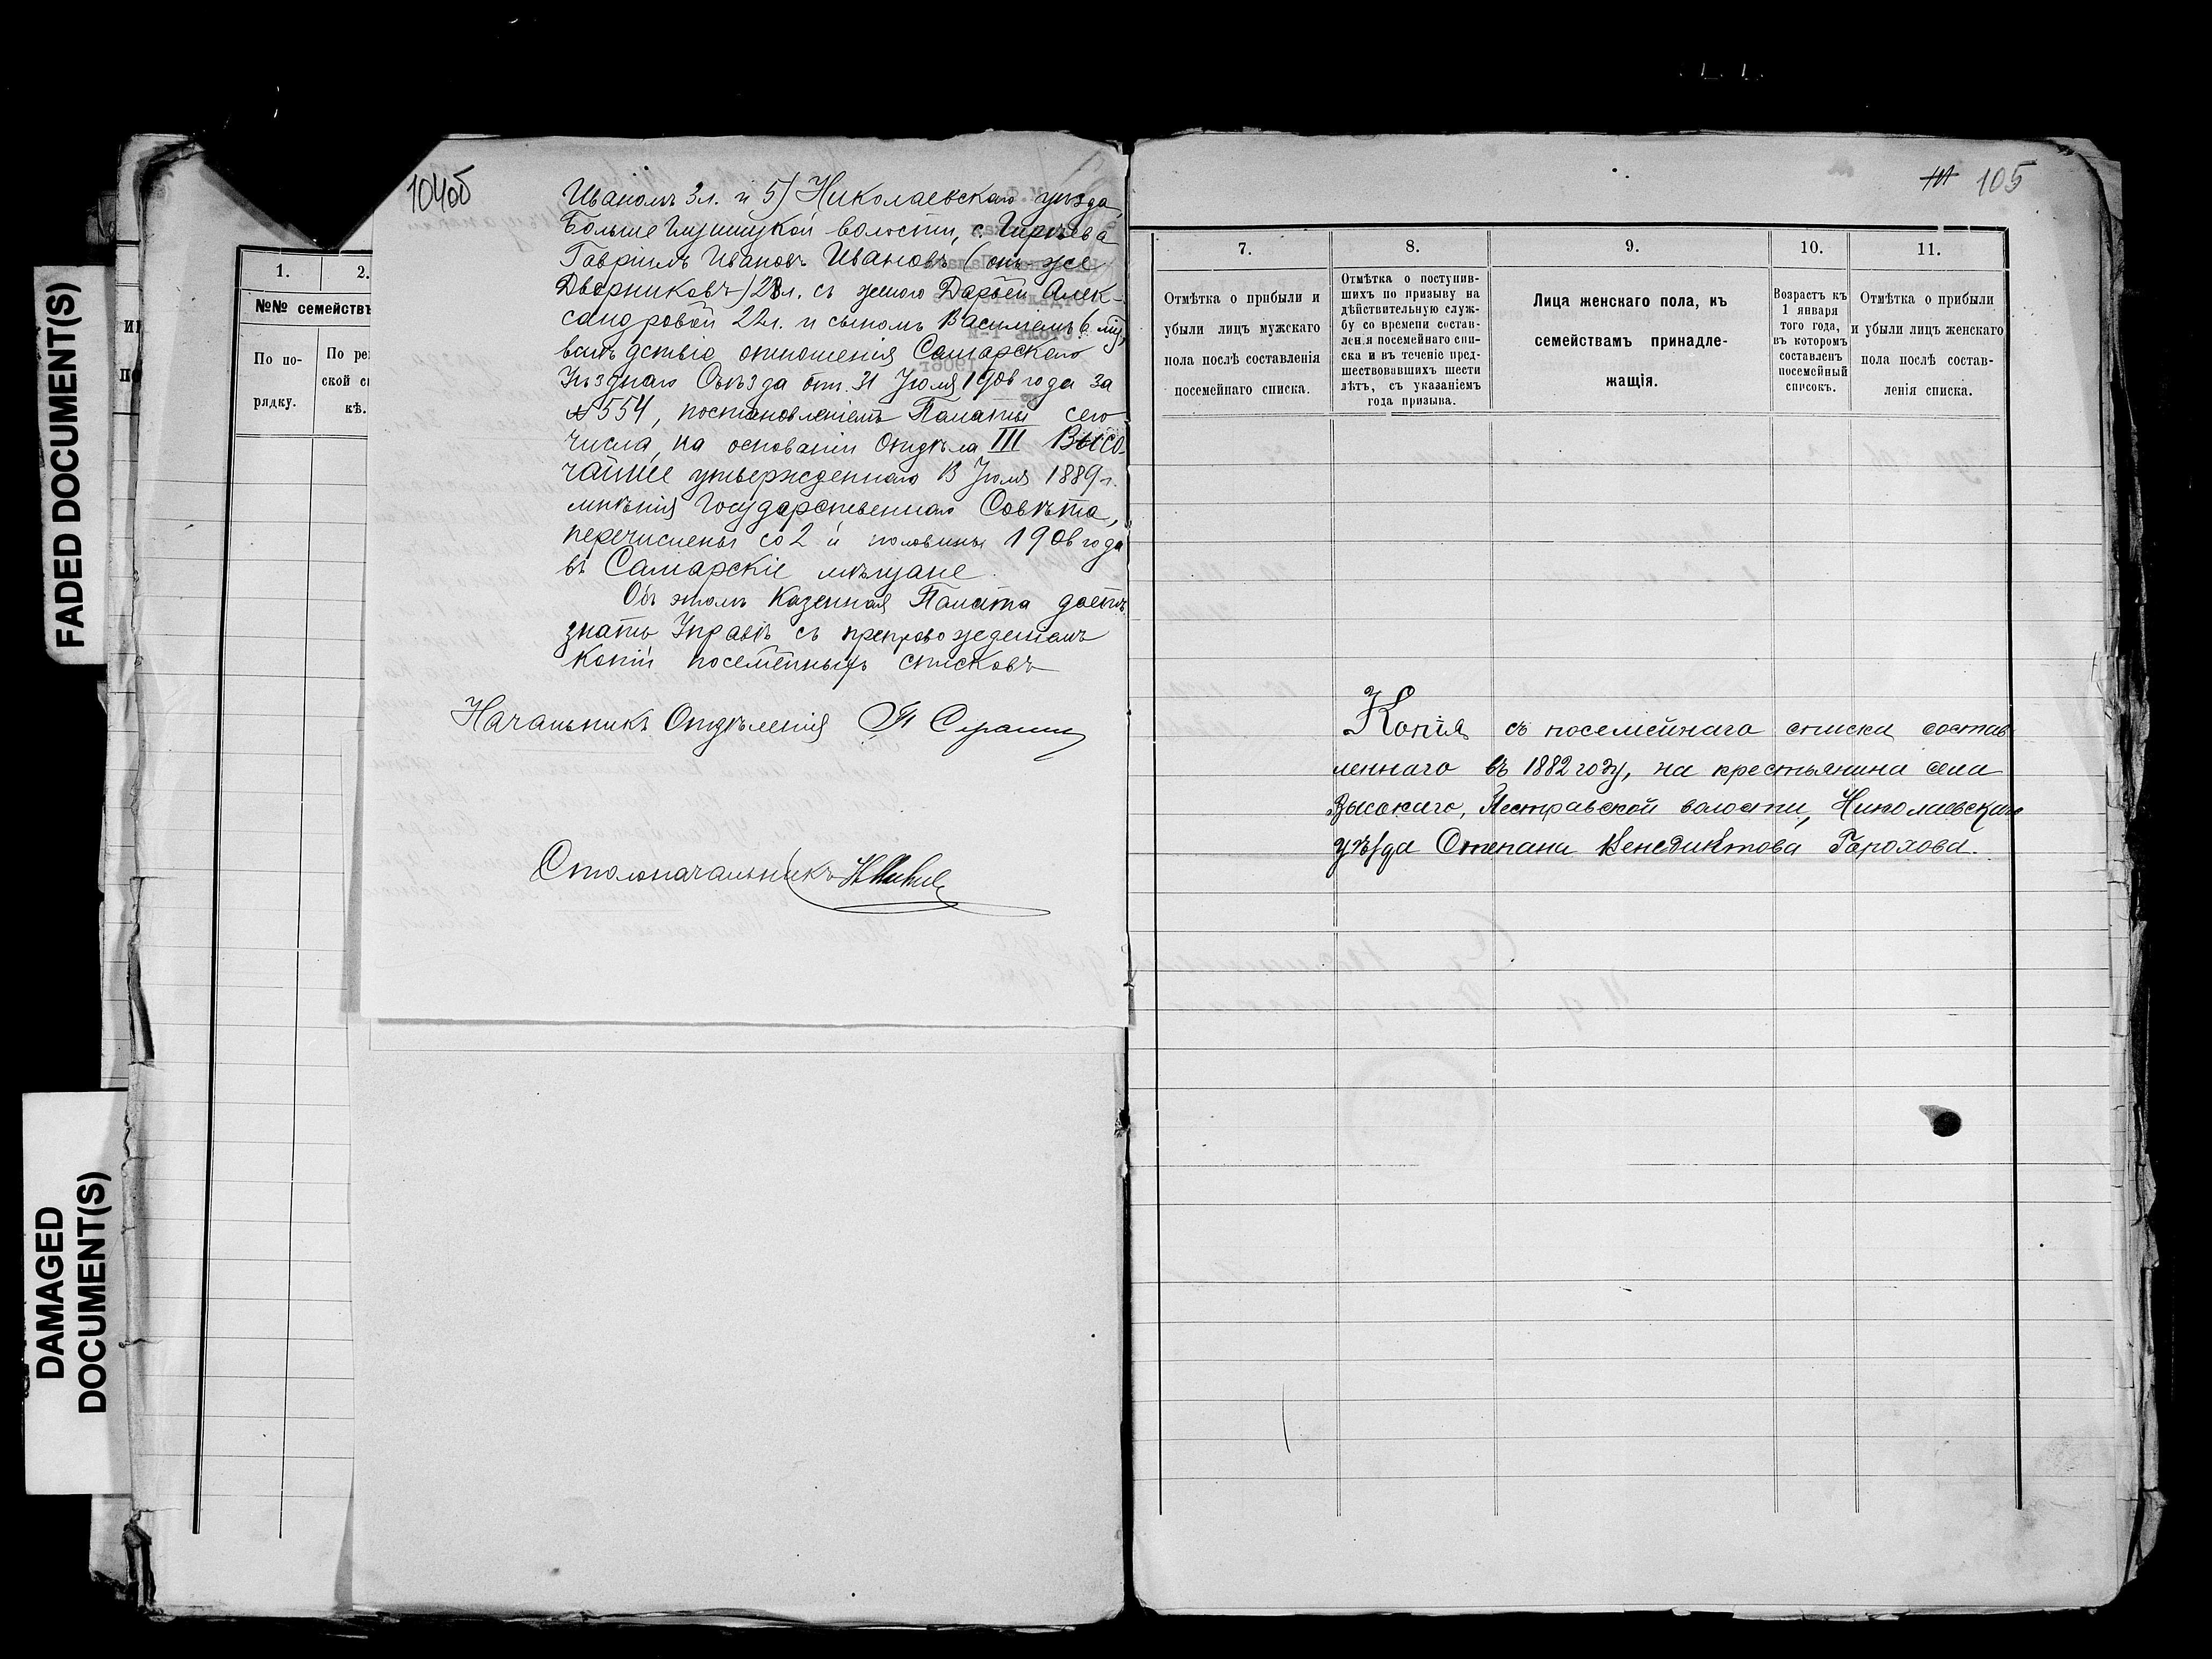 FADED DOCUMENT(S)
DAMAGED
DOCUMENT(S)
104об
Иваномъ 3л. и 5) Николаевскаго уѣзда,
Больше Глушицкой волости, с.
Гавріилъ Ивановъ Ивановъ (онъ-же
Дворниковъ) 28л. съ женою Дарьей Алек-
сандровой 22л. и сыномъ Василіемъ 6 м.,
вслѣдствіе отношенія Самарскаго
Уѣзднаго Съѣзда отъ 31 Іюля 1906 года за
№ 554, постановленіемъ Палаты сего
числа, на основаніи Отдѣла III Высо-
чайше утвержденнаго 13 Іюля 1889 г.
мнѣнія Государственнаго Совѣта,
перечислены со 2й половины 1906 года
въ Самарскіе мѣщане.
Объ этомъ Казенная Палата даетъ
знать Управѣ съ препровожденіемъ
копій посемейныхъ списковъ
Начальникъ Отдѣленія П
Столоначальникъ
1.
2.
№№ семействъ
По по-
рядку.
По ре
ской с
кѣ.
105
7.
8.
9.
10.
11.
Отмѣтка о прибыли и
убыли лицъ мужскаго
пола послѣ составленія
посемейнаго списка.
Отмѣтка о поступив-
шихъ по призыву на
дѣйствительную служ-
бу со времени состав-
ленія посемейнаго спи-
ска и въ теченіе пред-
шествовавшихъ шести
лѣтъ, съ указаніемъ
года призыва.
Лица женскаго пола, къ
семействамъ принадле-
жащія.
Возрастъ къ
1 января
того года,
въ которомъ
составленъ
посемейный
списокъ.
Отмѣтка о прибыли
и убыли лицъ женскаго
пола послѣ состав-
ленія списка.
Копія съ посемейнаго списка состав-
леннаго въ 1882 году, на крестьянина села
Высокаго, Пестравской волости, Николаевскаго
уѣзда Степана Венедиктова Горохова.